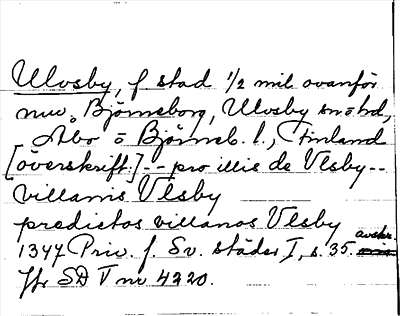 Ulvsby, f. stad 1/2 mil ovanför
nuv. Björneborg, Ulvsby sn o hd,
Åbo o Björneb. l., Finland
[överskrift:] -- pro illis de Vlsby --
villanis Vlsby
predictos villanos Vlsby
1347 Priv. f. Sv. städer I, s. 35. avskr.
Jfr SD V nr 4220.